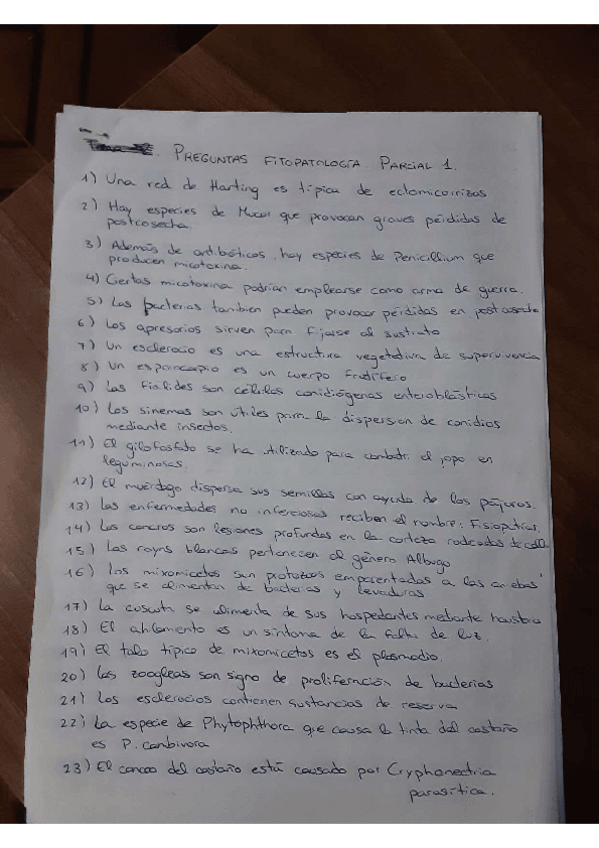 PREGUNTAS FITOPATOLOGÍA. PARCIAL 1.
1) Una red de Harting es típica de ectomicorrizas
2) Hay especies de Mucor que provocan graves pérdidas de
postcosecha.
3) Además de antibióticos, hay especies de Penicillium que
producen micotoxina.
4) Ciertas micotoxina podrían emplearse como arma de guerra.
5) Las bacterias tambien pueden provocar pérdidas en postcosecha
6) Los apresorios sirven para fijarse al sustrato
7) Un esclerocio es una estructura vegetativa de supervivencia
8) Un esporocarpio es un cuerpo fructífero
9) Las fialides son células conidiógenas enteroblásticas
10) Los sinemas son útiles para la dispersion de conidios
mediante insectos.
11) El glifosfato se ha utilizando para combatir el jopo en
leguminosas.
12) El muérdago dispersa sus semillas con ayuda de los pájaros.
13) Las enfermedades no infecciosas reciben el nombre: Fisiopatías.
14) Los cancros son lesiones profundas en la corteza rodeadas de call
15) Las royas blancas pertenecen al género Albugo
16) Los mixomicetos son protozoos emparentados a las amebas
que se alimentan de bacterias y levaduras
17) La cuscuta se alimenta de sus hospedantes mediante haustorio
18) El ahilamiento es un síntoma de la falta de luz.
19) El talo típico de mixomicetos es el plasmodio.
20) Las zoogleas son signo de proliferación de bacterias
21) Los esclerocios contienen sustancias de reserva
22) La especie de Phytophthora que causa la tinta del castaño
es P. cambivora
23) El cancro del castaño está causado por Cryphonectria
parasítica.